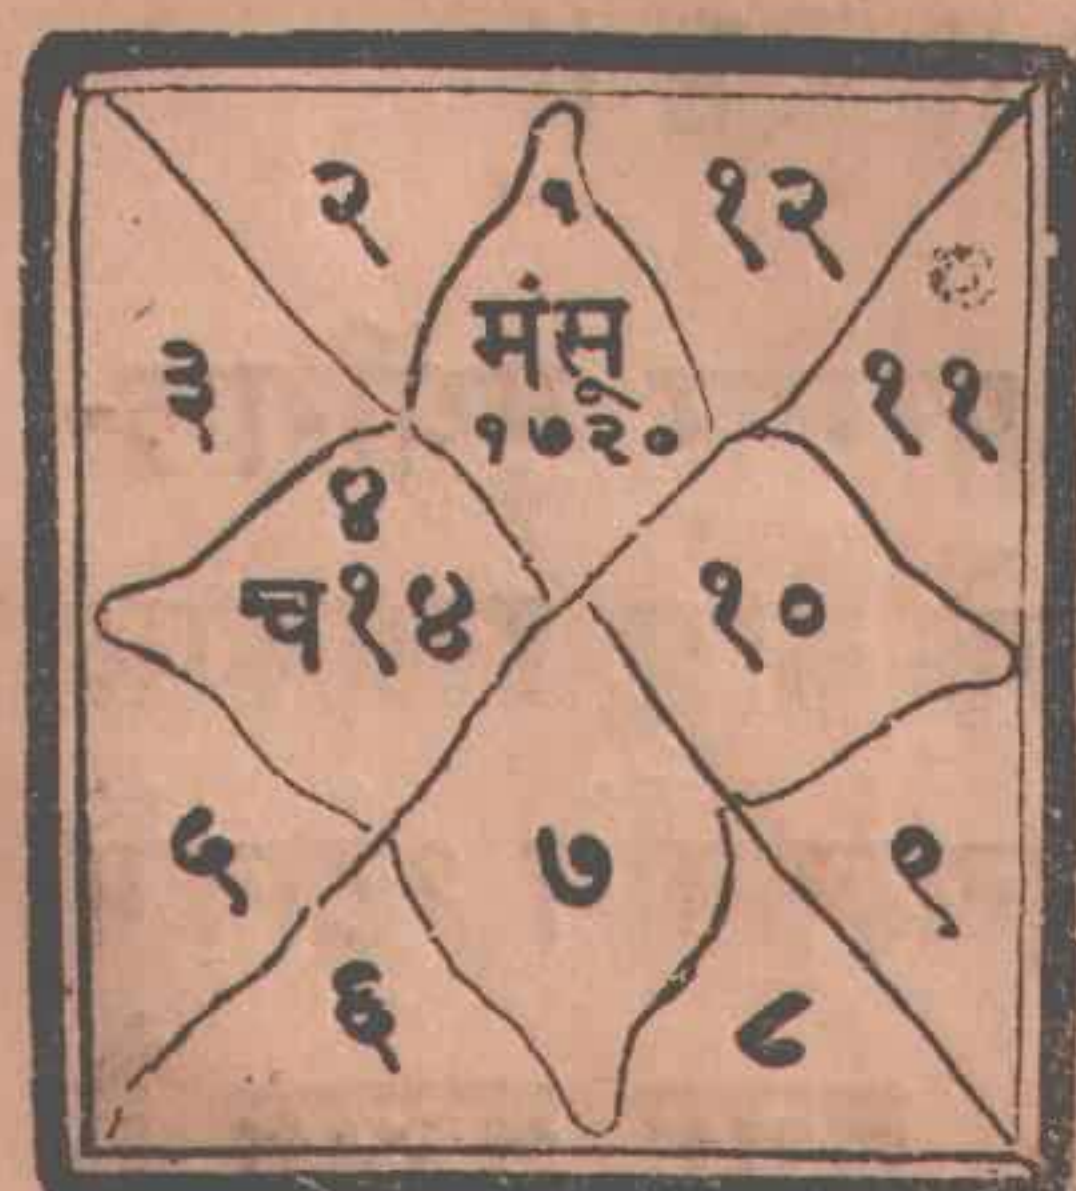 २ १ १२
मंसू
३ १७२० ११
४
च१४ १०
५ ७ ९
६ ८